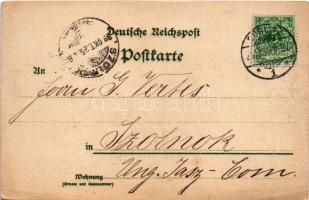 Deutsche Reichspost
Postkarte
An
Herrn G. Vertes
in Szolnok
Ung. Jasz-Com.
Wohnung
(Strasse und Hausnummer)